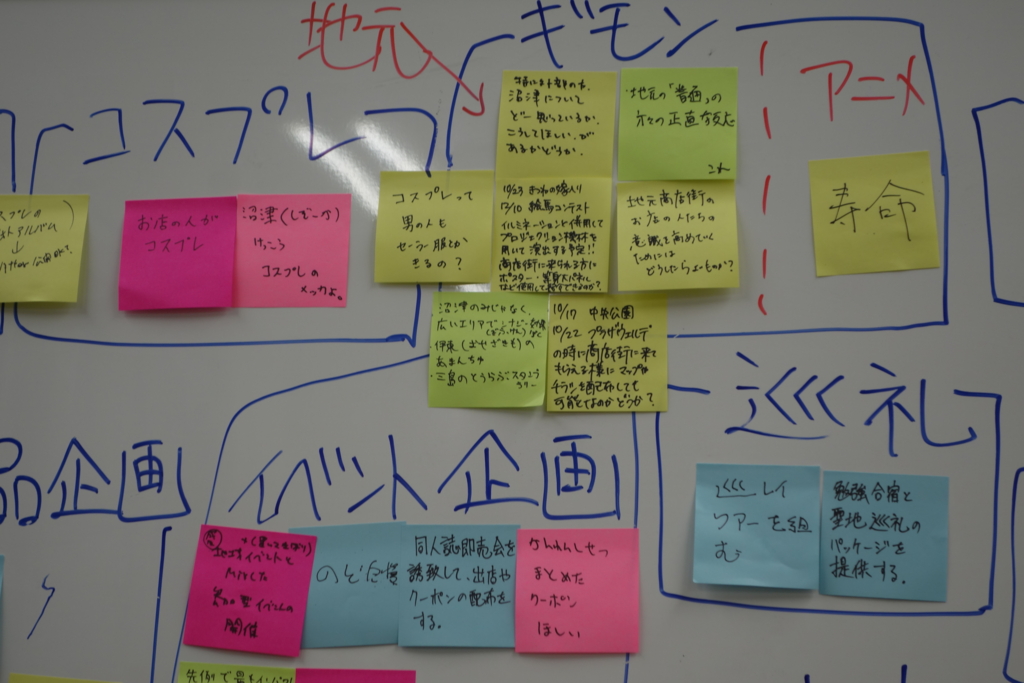 地元
ギモン
アニメ
コスプレ
沼津について
どー思っているか、
こうしてほしい、が
あるかどうか、
地元の「普通」の
方々の正直な反応
寿命
お店の人が
コスプレ
沼津(しぞーか)
けっこう
コスプレの
メッカよ。
コスプレって
男の人も
セーラー服とか
きるの?
10/23 きつねの嫁入り
12/10 絵馬コンテスト
イルミネーションと併用して
プロジェクション機材を
用いて演出する予定!!
商店街に来られる方に
ポスター・等身大パネル
など使用して
地元商店街の
お店の人たちの
意識を高めていく
ためには
どうしたらよいものか?
沼津のみじゃなく、
広いエリアで
伊東
あまんちゅ
・三島のとうらぶスタンプ
ラリー
10/17 中央公園
10/22 プラザヴェルデ
の時に商店街に来て
もらえる様にマップや
チラシを配布しても
可能なのかどうか?
巡礼
巡礼
ツアーを組
む
勉強合宿と
聖地巡礼の
パッケージを
提供する。
品企画
イベント企画
地域イベントと
開催
のど自慢
同人誌即売会を
誘致して、出店や
クーポンの配布を
する。
まとめた
クーポン
ほしい